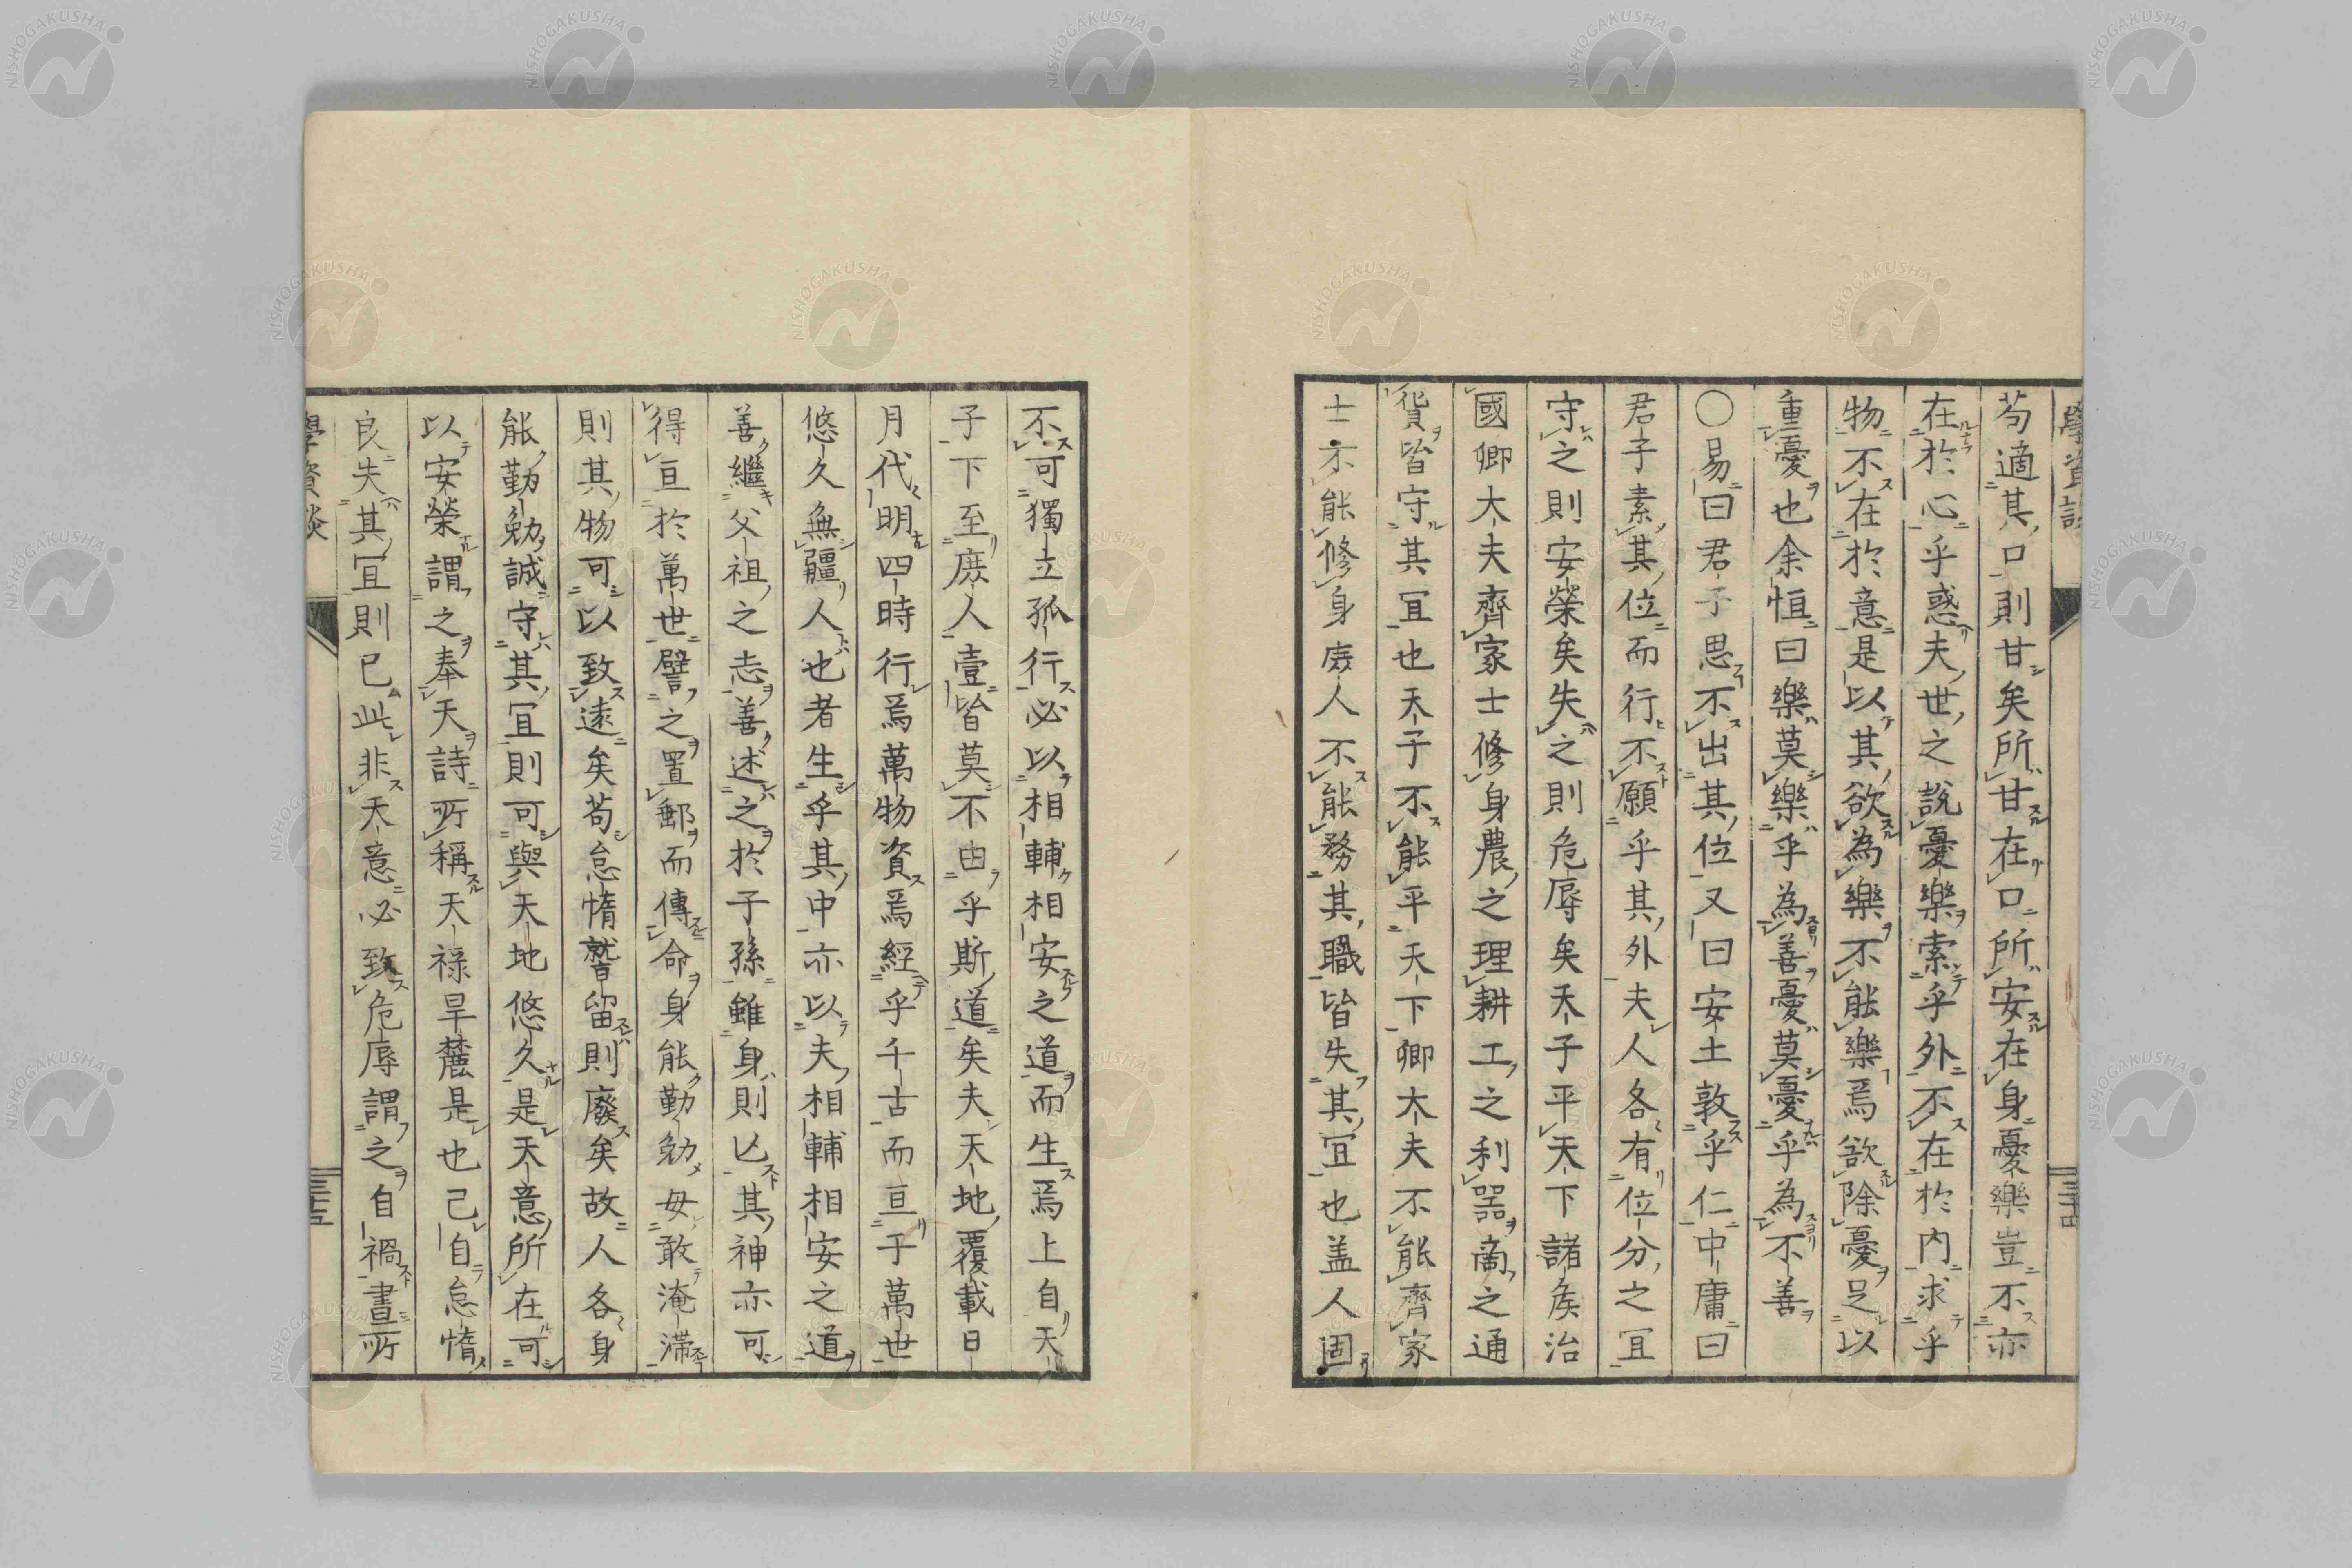 苟適其口則甘矣所甘在口所安在身憂樂豈不亦
在於心乎惑夫世之說憂樂索乎外不在於內求乎
物不在於意是以其欲為樂不能樂焉欲除憂足以
重憂也余恒曰樂莫樂乎為善憂莫憂乎為不善
〇易曰君子思不出其位又曰安土敦乎仁中庸曰
君子素其位而行不願乎其外夫人各有位分之宜
守之則安榮矣失之則危辱矣天子平天下諸矦治
國卿大夫齊家士修身農之理耕工之利器啇之通
貨皆守其宜也天子不能平天下卿大夫不能齊家
士不能修身庶人不能務其職皆失其宜也盖人固
不可獨立孤行必以相輔相安之道而生焉上自天
子下至庶人壹皆莫不由乎斯道矣夫天地覆載日
月代明四時行焉萬物資焉經乎千古而亘于萬世
悠久無疆人也者生乎其中亦以夫相輔相安之道
善繼父祖之志善述之於子孫雖身則亾其神亦可
得亘於萬世譬之置郵而傳命身能勤勉毋敢淹滞
則其物可以致遠矣苟怠惰暫留則廢矣故人各身
能勤勉誠守其宜則可與天地悠久是天意所在可
以安榮謂之奉天詩所稱天祿旱麓是也己自怠惰
良失其宜則已此非天意必致危辱謂之自禍書所
學資談
三十五
三十四
NISHOGAKUSHA